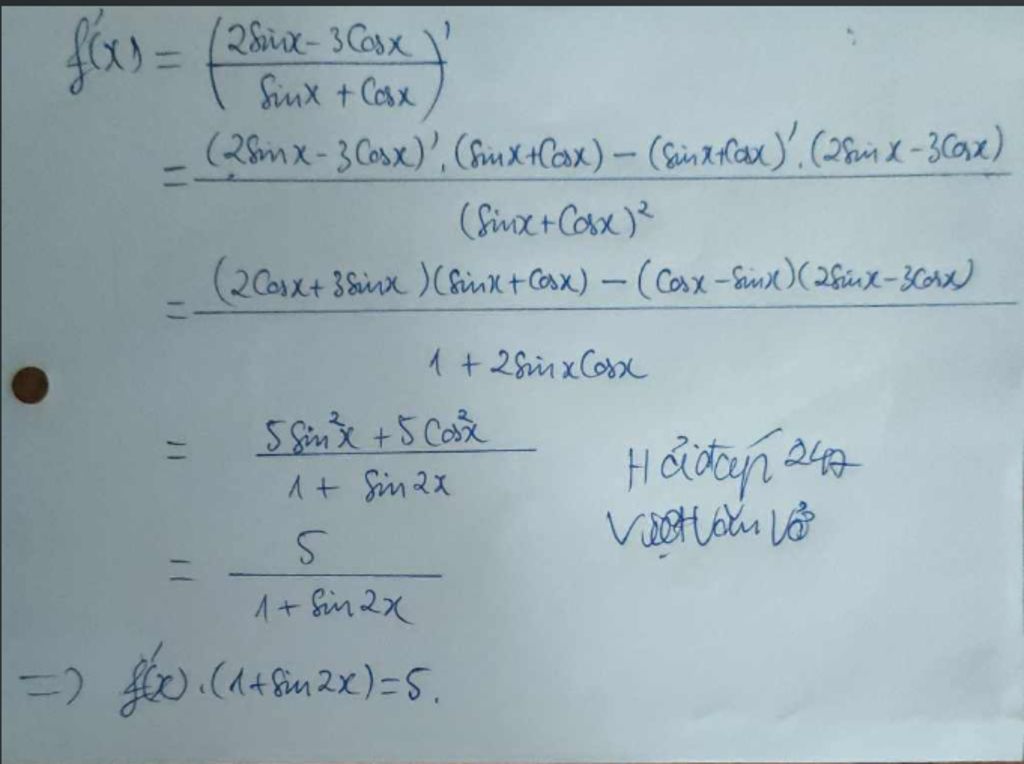 f'(x) = (2Sinx - 3Cosx / Sinx + Cosx)'
= (2Sinx - 3Cosx)'.(Sinx + Cosx) - (Sinx + Cosx)'.(2Sinx - 3Cosx) / (Sinx + Cosx)²
= (2Cosx + 3Sinx)(Sinx + Cosx) - (Cosx - Sinx)(2Sinx - 3Cosx) / 1 + 2SinxCosx
= 5Sin²x + 5Cos²x / 1 + Sin2x
Hỏi đáp 247
= 5 / 1 + Sin2x
=> f'(x).(1 + Sin2x) = 5.